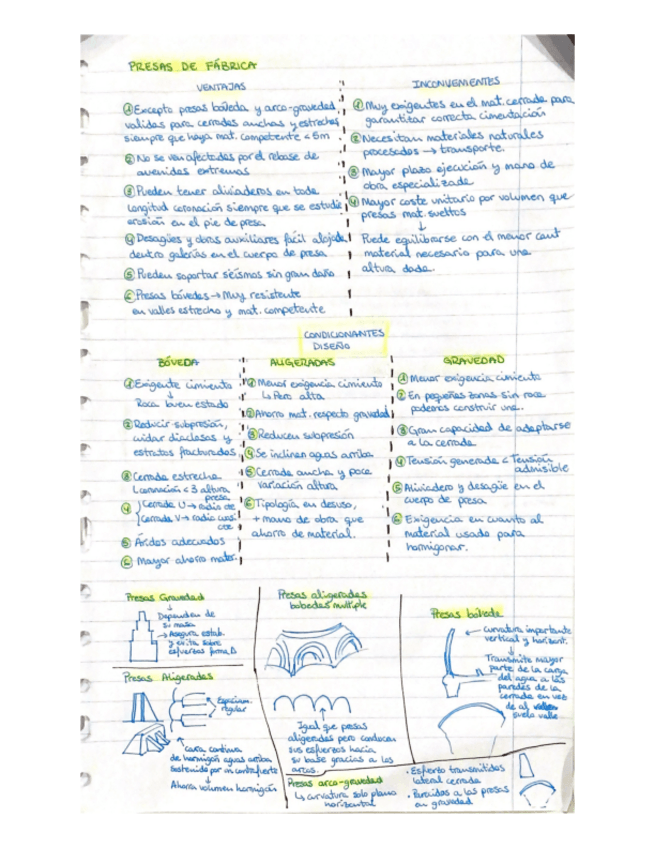 PRESAS DE FÁBRICA
VENTAJAS
① Excepto presas bóveda y arco-gravedad
validas para cerradas anchas y estrechas
siempre que haya mat. competente < 5m
② No se ven afectadas por el rebase de
avenidas extremas
③ Pueden tener aliviaderos en toda
longitud coronación siempre que se estudie
erosión en el pie de presa
④ Desagües y obras auxiliares fácil alojada
dentro galerías en el cuerpo de presa
⑤ Pueden soportar seísmos sin gran daño
⑥ Presas bóvedas → Muy resistente
en valles estrecho y mat. competente
INCONVENIENTES
① Muy exigentes en el mat. cerrada para
garantizar correcta cimentación
② Necesitan materiales naturales
procesados → transporte.
③ Mayor plazo ejecución y mano de
obra especializada
④ Mayor coste unitario por volumen que
presas mat. sueltos
↓
Puede equilibrarse con el menor cant
material necesario para una
altura dada.
CONDICIONANTES
DISEÑO
BÓVEDA
① Exigente cimiento
↓
Roca buen estado
② Reducir subpresión,
cuidar diaclasas y
estratos fracturados
③ Cerrada estrecha
L coronación < 3 altura
presa
④ { Cerrada U → radio cte
Cerrada V → radio
cte
⑤ Áridos adecuados
⑥ Mayor ahorro mater.
ALIGERADAS
① Menor exigencia cimiento
↳ Pero alta
② Ahorro mat. respecto gravedad
③ Reducen subpresión
④ Se inclinan aguas arriba
⑤ Cerrada ancha y poca
variación altura
⑥ Tipología en desuso,
+ mano de obra que
ahorro de material.
GRAVEDAD
① Menor exigencia cimiento
② En pequeñas zonas sin roca
podemos construir una.
③ Gran capacidad de adaptarse
a la cerrada
④ Tensión generada < Tensión
admisible
⑤ Aliviadero y desagüe en el
cuerpo de presa
⑥ Exigencia en cuanto al
material usado para
hormigonar.
Presas Gravedad
↓
Dependen de
su masa
→ Asegura estab.
y evita sobre
esfuerzos forma Δ
Presas Aligeradas
Espaciam.
regular
cara continua
de hormigón aguas arriba
sostenido por un contrafuerte
↓
Ahorra volumen hormigón
Presas aligeradas
bobedas multiple
Igual que presas
aligeradas pero conducen
sus esfuerzos hacia
su base gracias a los
arcos.
Presas bóveda
← curvatura importante
vertical y horizont.
↓
Transmite mayor
parte de la carga
del agua a las
paredes de la
cerrada en vez
de al
suelo valle
Presas arco-gravedad
↳ curvatura solo plano
horizontal
• Esfuerzo transmitidos
lateral cerrada
• Parecidos a las presas
en gravedad